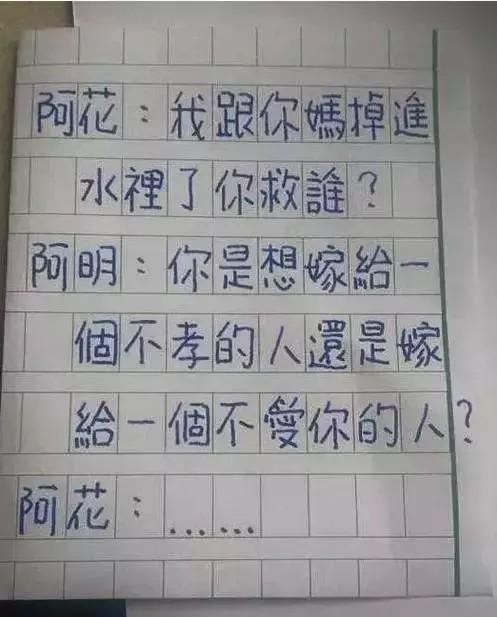 阿花：我跟你媽掉進
水裡了你救誰？
阿明：你是想嫁給一
個不孝的人還是嫁
給一個不愛你的人？
阿花：……